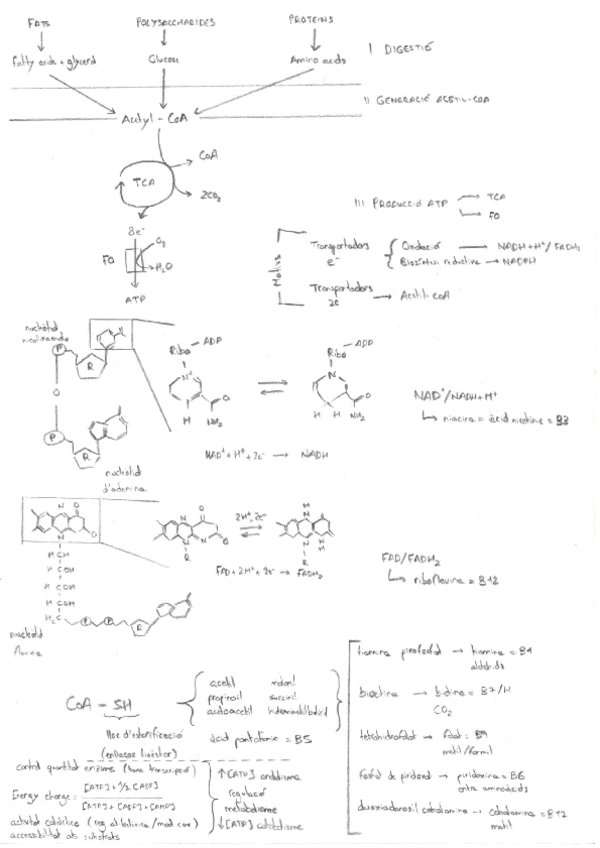 FATS POLYSACCHARIDES PROTEINS
Fatty acids + glycerol Glucose Amino acids I DIGESTIÓ
II GENERACIÓ ACETIL-COA
Acetyl - CoA
CoA
TCA
2CO₂
III PRODUCCIÓ ATP TCA
FO
8e⁻
O₂
FO
H₂O
ATP
Transportadors e⁻ Oxidació NADH+H⁺/FADH₂
Biosíntesi reductiva NADPH
Transportadors 2C Acetil-CoA
nucleòtid
nicotinamida
P
R
O
P
R
nucleòtid
d'adenina
Ribo - ADP
N⁺
O
NH₂
H
Ribo - ADP
N
O
NH₂
H H
NAD⁺/NADH+H⁺
niacina = àcid nicotínic = B3
NAD⁺ + H⁺ + 2e⁻ → NADH
2H⁺, 2e⁻
FAD + 2H⁺ + 2e⁻ → FADH₂
FAD/FADH₂
riboflavina = B12
HCH
HCOH
HCOH
HCOH
H₂C
P P R
nucleòtid
CoA - SH
lloc d'esterificació
(enllaços tioèster)
acetil malonil
propionil succinil
acetoacetil
àcid pantotènic = B5
tiamina pirofosfat → tiamina = B1
aldehids
biotina = B7/H
CO₂
tetrahidrofolat → folat = B9
metil/formil
fosfat de piridoxal → piridoxina = B6
entre aminoàcids
cobalamina = B12
metil
control quantitat enzims
Energy charge = [ATP] + 1/2 [ADP]
[ATP] + [ADP] + [AMP]
activitat catalítica
accessibilitat als substrats
↑[ATP] anabolisme
regulació
metabolisme
↓[ATP] catabolisme